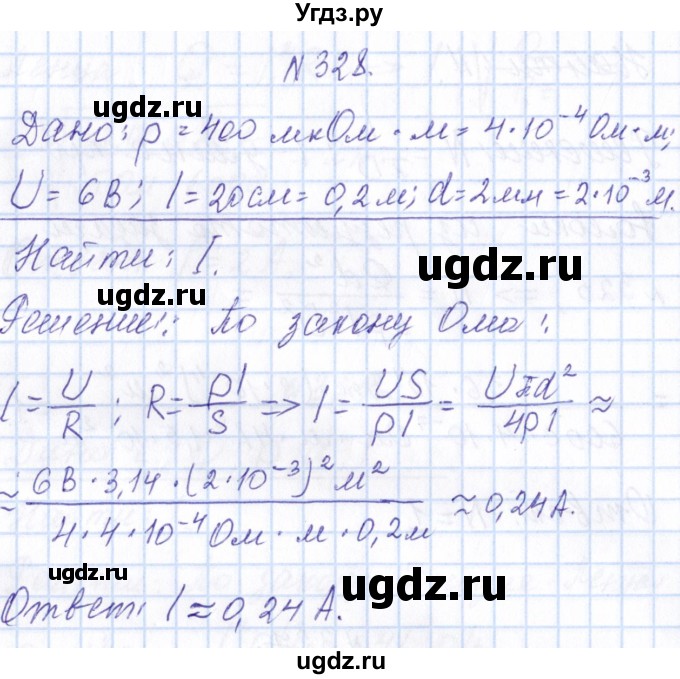 Угдз.ру
N 328.
ugdz.ru ugdz.ru
Дано: ρ = 400 мкОм · м = 4 · 10⁻⁴ Ом · м;
U = 6В; l = 20см = 0,2м; d = 2мм = 2 · 10⁻³ м.
Найти: I.
ugdz.ru
ugdz.ru
Решение: По закону Ома:
I = U/R ; R = ρl/S => I = US/ρl = Uπd²/4ρl ≈
≈ 6В · 3,14 · (2 · 10⁻³)² м² / 4 · 4 · 10⁻⁴ Ом · м · 0,2м ≈ 0,24А.
ugdz.ru
ugdz.ru
Ответ: I ≈ 0,24 А.
ugdz.ru